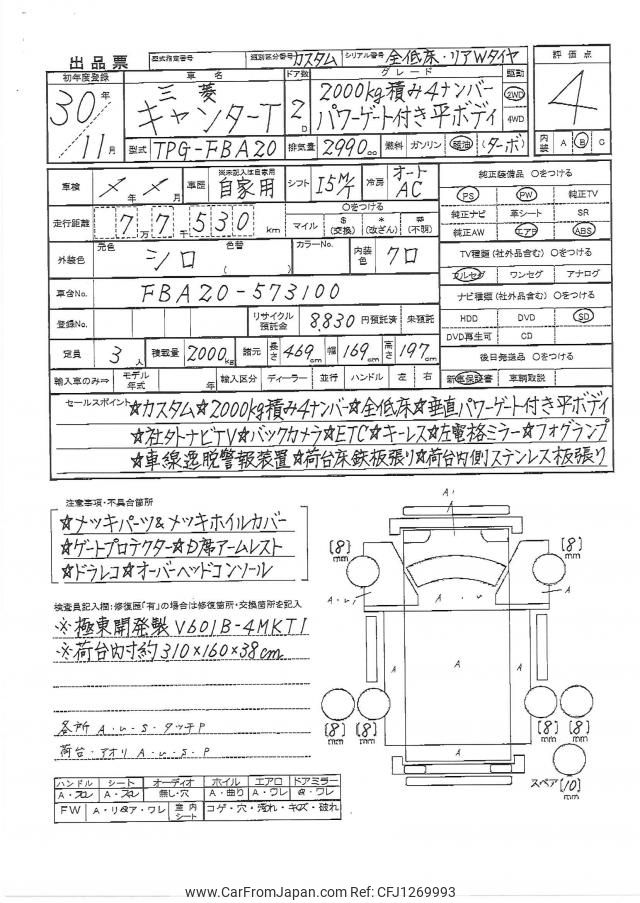 出品票
型式指定番号
類別区分番号 カスタム
シリアル番号 全低床・リアWタイヤ
評価点
4
初年度登録 30年 11月
車名 三菱 キャンターT
ドア数 2D
グレード 2000kg積み4ナンバー
パワーゲート付き平ボディ
駆動 2WD 4WD
型式 TPG-FBA20
排気量 2990cc
燃料 ガソリン 軽油 (ターボ)
内装 A B C
車検 × 年 × 月
車歴 自家用
シフト I5M/T
冷房 オートAC
純正装備品 ○をつける
PS PW 純正TV
純正ナビ 革シート SR
純正AW エアB ABS
走行距離 7万7千530km
○をつける
マイル $(交換) *(改ざん) #(不明)
外装色 元色 シロ 色替 ( )
カラーNo.
内装色 クロ
TV種類(社外品含む) ○をつける
フルセグ ワンセグ アナログ
車台No. FBA20-573100
ナビ種類(社外品含む) ○をつける
HDD DVD SD
DVD再生可 CD
登録No.
リサイクル預託金 8,830 円預託済 未預託
定員 3人
積載量 2000kg
諸元 長さ 469cm 幅 169cm 高さ 197cm
後日発送品 ○をつける
新車保証書 車輌取説
輸入車のみ⇒ モデル年式 年 輸入区分 ディーラー 並行 ハンドル 左 右
セールスポイント ☆カスタム☆2000kg積み4ナンバー☆全低床☆垂直パワーゲート付き平ボディ
☆社外ナビTV☆バックカメラ☆ETC☆キーレス☆左電格ミラー☆フォグランプ
☆車線逸脱警報装置☆荷台床鉄板張り☆荷台内側ステンレス板張り
注意事項・不具合箇所
☆メッキパーツ&メッキホイルカバー
☆ゲートプロテクター☆D席アームレスト
☆ドラレコ☆オーバーヘッドコンソール
検査員記入欄:修復歴「有」の場合は修復箇所・交換箇所を記入
※極東開発製V601B-4MKT1
※荷台内寸約310×160×38cm
各所 A・U・S・タッチP
荷台・アオリ A・U・S・P
ハンドル シート オーディオ ホイル エアロ ドアミラー
A・スレ A・スレ 無し・穴 A・曲り A・ワレ A・ワレ
FW A・リペア・ワレ 室内シート コゲ・穴・汚れ・キズ・破れ
A1
[8]mm [8]mm
A
A・U1 A・U1
A A A
[8]mm [8]mm [8]mm [8]mm
A
スペア [10]mm
www.CarFromJapan.com Ref: CFJ1269993